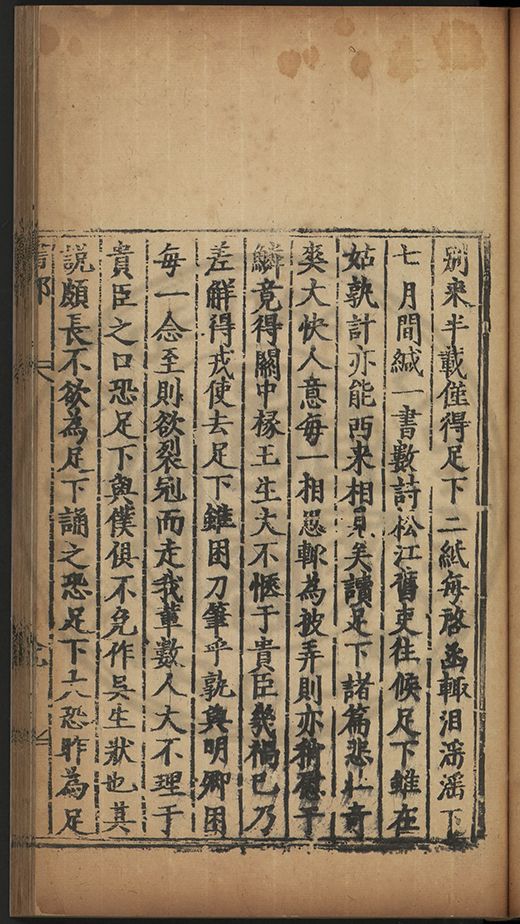 別来半載僅得足下二紙每啓函輙泪滛滛下
七月間緘一書數詩松江舊吏往候足下雖在
姑孰計亦能西来相見矣讀足下諸篇悲壯奇
爽大快人意每一相思輙為披弄則亦稍慰于
鱗竟得關中椽王生大不愜于貴臣幾褐已乃
差觧得戎使去足下雖困刀筆乎孰與明卿困
每一念至則欲裂冠而走我輩數人大不理于
貴臣之口恐足下與僕俱不免作吳生狀也其
說頗長不欲為足下誦之恐足下六恐昨為足